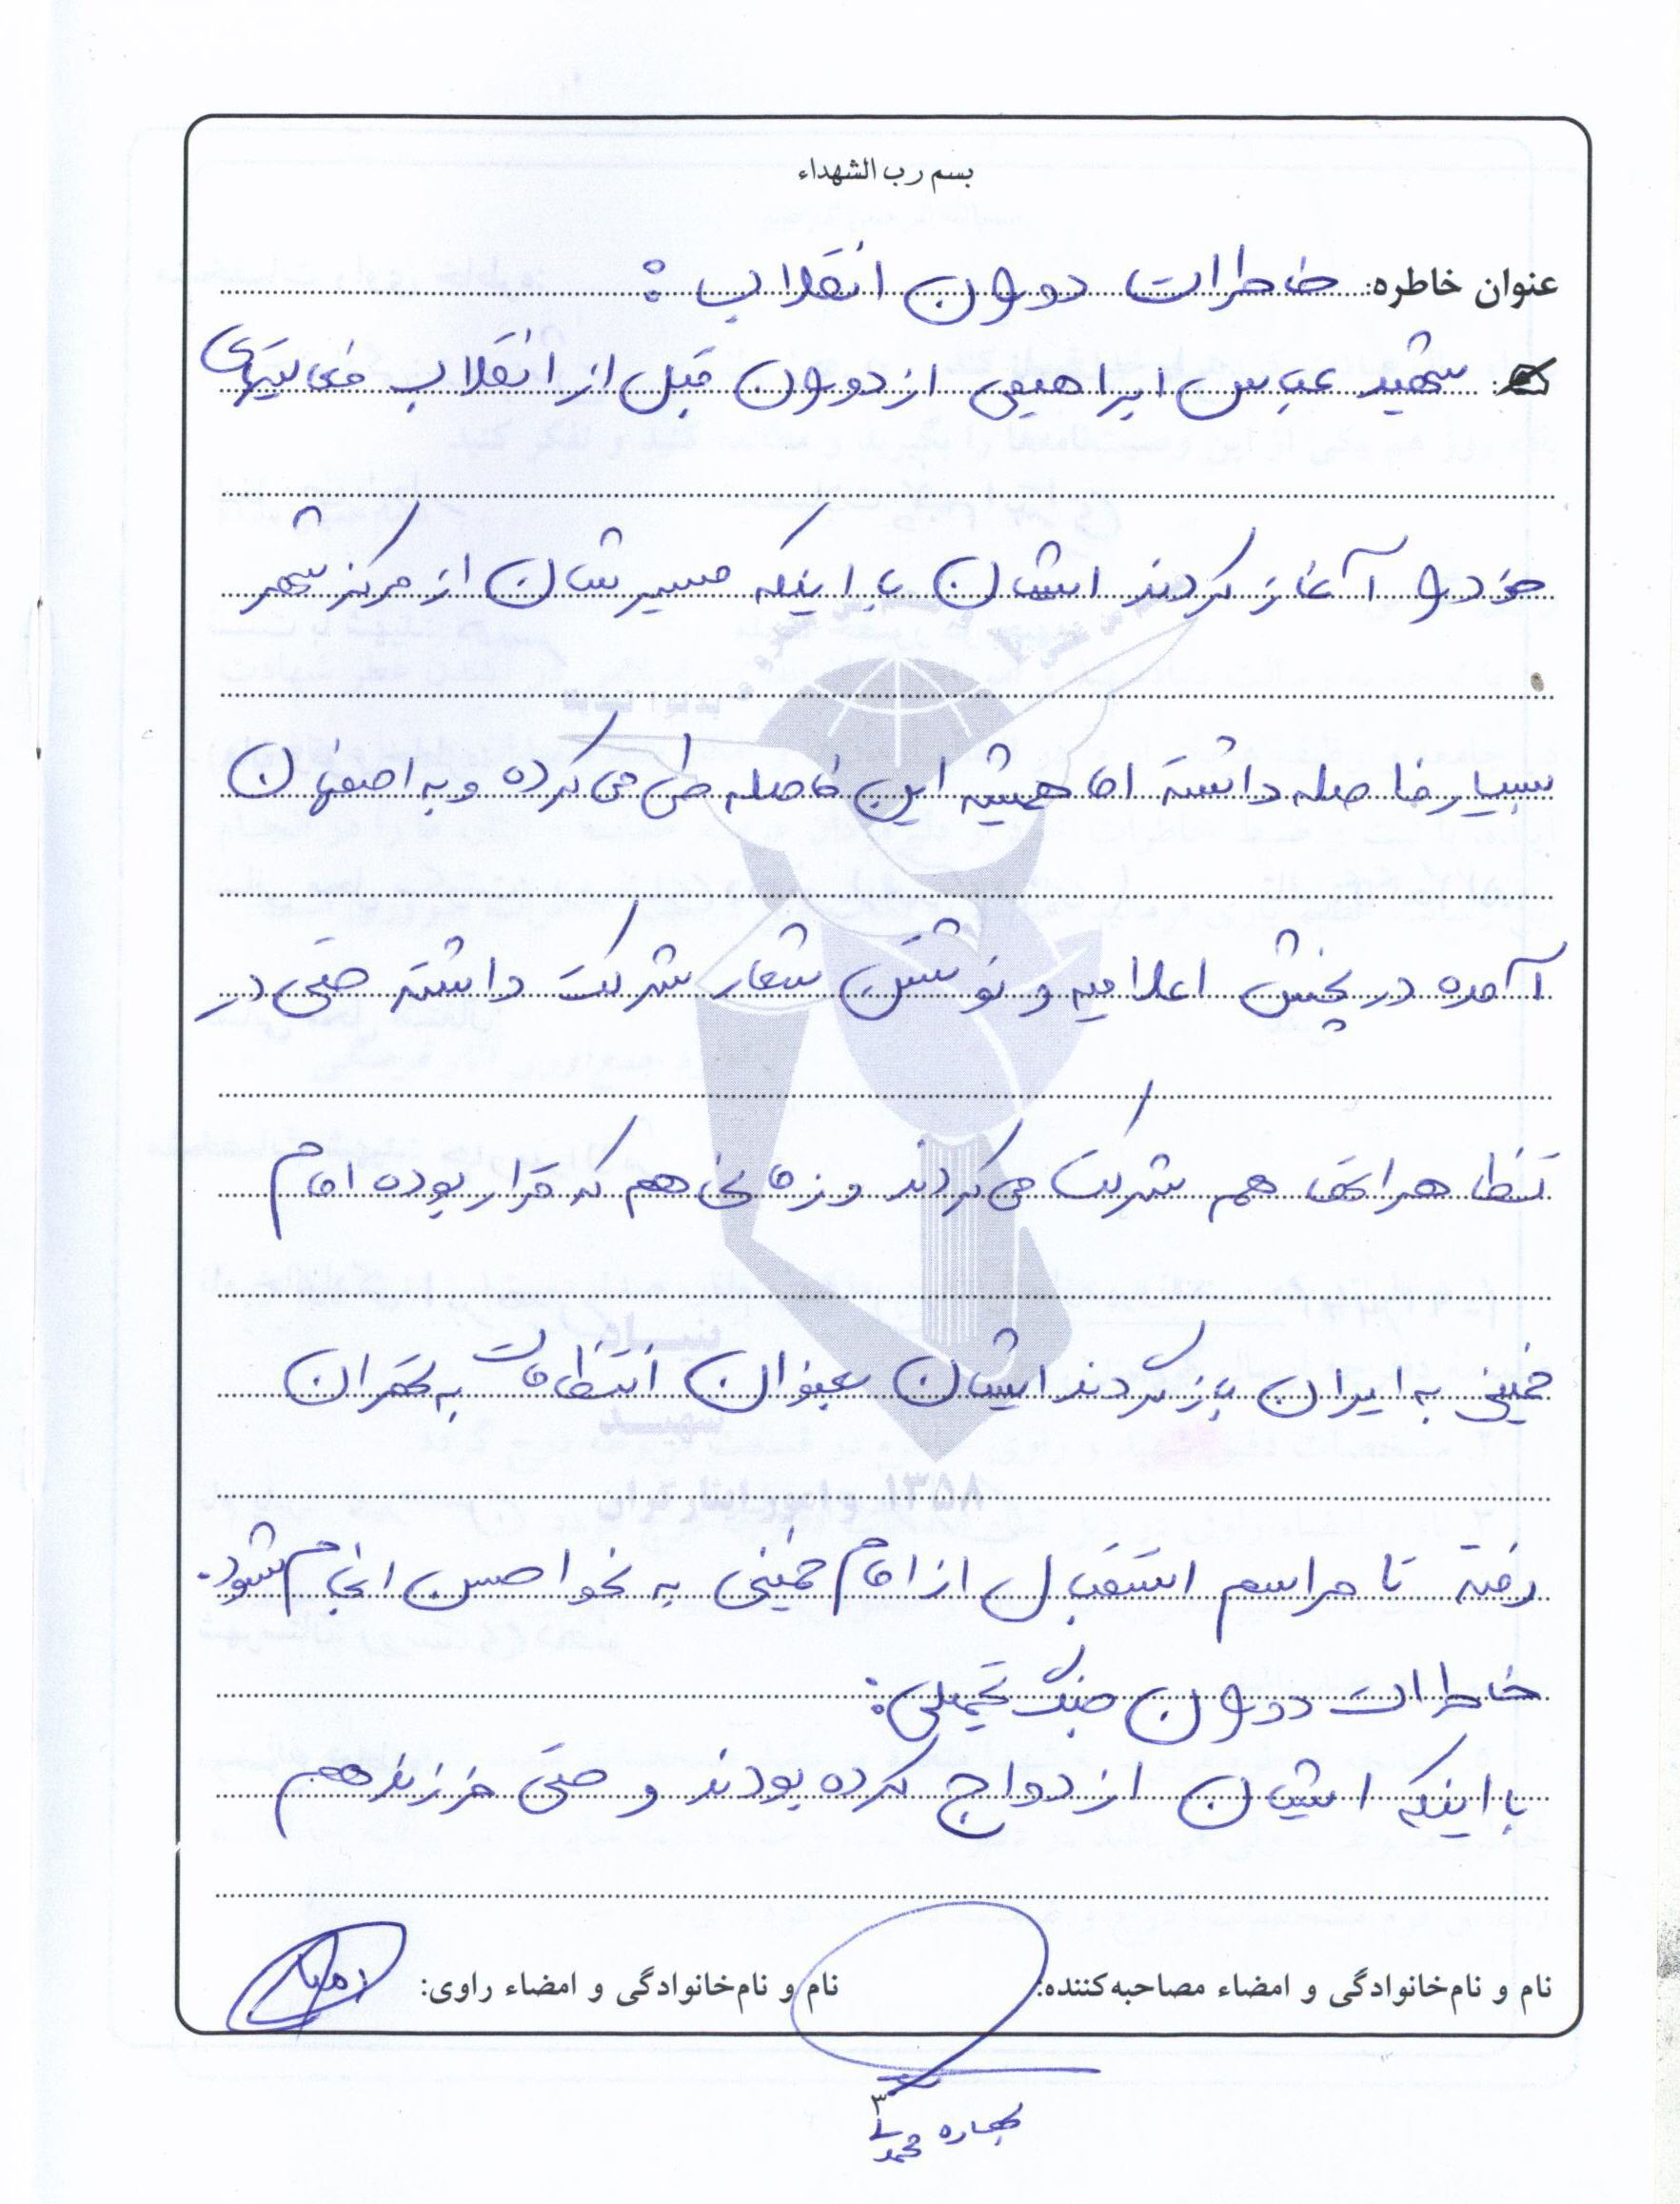 بسم رب الشهداء
عنوان خاطره: خاطرات دوران انقلاب :
شهید عباس ابراهیمی از دوران قبل از انقلاب فعالیتهای
خود را آغاز کردند ایشان با اینکه مسیرشان از مرکز شهر
بسیار فاصله داشته اما همیشه این فاصله طی می کرده و به اصفهان
آمده در پخش اعلامیه و نوشتن شعار شرکت داشته حتی در
تظاهرات هم شرکت می کردند و زمانی هم که قرار بوده امام
خمینی به ایران بازگردند ایشان بعنوان انتظامات به تهران
رفته تا مراسم استقبال از امام خمینی به نحو احسن انجام شود.
خاطرات دوران جنگ تحمیلی:
با اینکه ایشان ازدواج کرده بودند و حتی فرزند هم
نام و نام‌خانوادگی و امضاء مصاحبه‌کننده:
نام و نام‌خانوادگی و امضاء راوی:
۳
۱۳۵۸